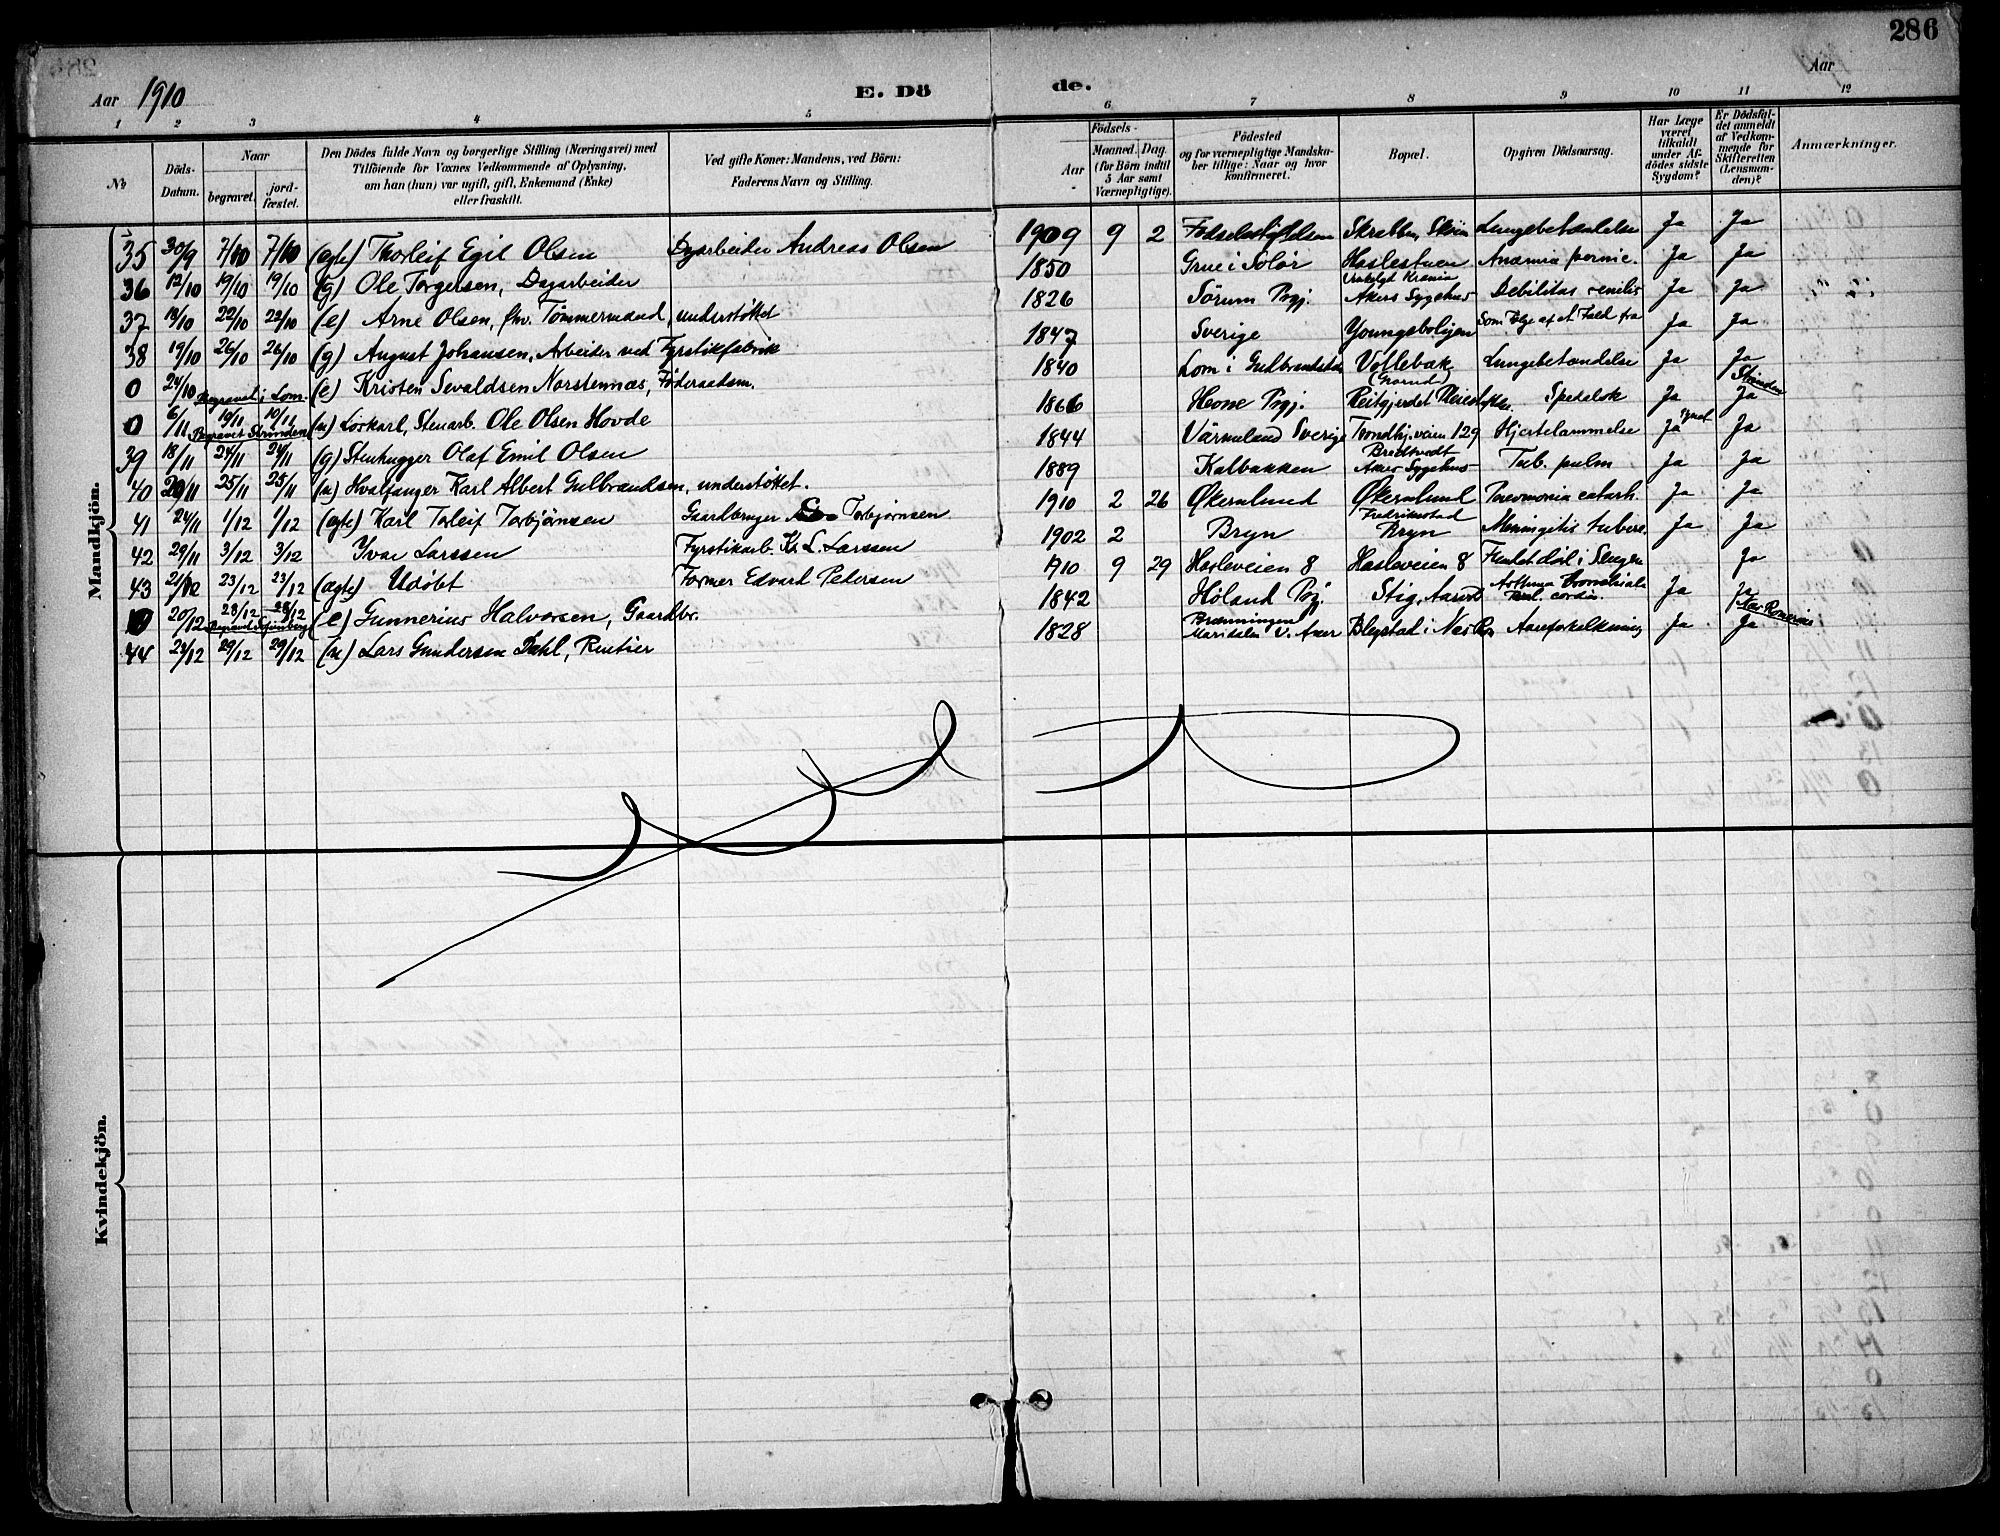 286
Aar 1910 E. Dö de. Aar
1 2 3 4 5 6 7 8 9 10 11 12
No
Döds-Datum.
Naar
begravet.
jord-fæstet.
Den Dödes fulde Navn og borgerlige Stilling (Næringsvei) med
Tilföiende for Voxnes Vedkommende af Oplysning,
om han (hun) var ugift, gift, Enkemand (Enke)
eller fraskilt.
Ved gifte Koner: Mandens, ved Börn:
Faderens Navn og Stilling.
Födsels-
Aar
Maaned. Dag.
(for Börn indtil
5 Aar samt
Værnepligtige).
Födested
og for værnepligtige Mandska-
ber tillige: Naar og hvor
konfirmeret.
Bopæl.
Opgiven Dödsaarsag.
Har Læge
været
tilkaldt
under Af-
dödes sidste
Sygdom?
Er Dödsfal-
det anmeldt
af Vedkom-
mende for
Skifteretten
(Lensman-
den)?
Anmærkninger.
Mandkjön.
35 30/9 7/10 7/10 (ægte) Thorleif Egil Olsen Dagarbeider Andreas Olsen 1909 9 2 Fødselsstiftelsen Lungebetændelse Ja Ja
36 12/10 19/10 19/10 (g) Ole Torgersen, Dagarbeider 1850 Grue i Solør Haslestuen Anæmia pernic. Ja Ja
37 18/10 22/10 22/10 (e) Arne Olsen, fhv. Tømmermand, understøttet 1826 Sörum Pgj. Akers Sygehus Debilitas senilis Ja Ja
38 19/10 26/10 26/10 (g) August Johansen, Arbeider ved Fyrstikfabrik 1847 Sverige Youngsbolijen Som Følge af et Fald fra Ja Ja
0 24/10 Begravet i Lom. (e) Kristen Sevaldsen Norstennæs, Føderaadsm. 1840 Lom i Gulbrandsdalen Vollebæk (Grorud) Lungebetændelse Ja Ja
0 6/11 10/11 10/11 Begravet Strinden (u) Løskarl, Stenarb. Ole Olsen Hovde 1866 Hevne Pgj. Reitgjerdet Pleiestiftelse. Spedalsk Ja Strinden Ja
39 18/11 24/11 24/11 (g) Stenhugger Olaf Emil Olsen 1844 Värmland Sverige Trondhj.veien 129 Hjertelammelse Ja Ja
40 20/11 25/11 25/11 (u) Hvalfanger Karl Albert Gulbrandsen, understøttet. 1889 Kalbakken Bredtvedt Akers Sygehus Tub. pulm Ja Ja
41 24/11 1/12 1/12 (ægte) Karl Torleif Torbjörnsen Gaardbruger Torbjørnsen 1910 2 26 Økernlund Økernlund Pneumonia catarh. Ja Ja
42 29/11 3/12 3/12 Yvar Larssen Fyrstikarb. Kr. L. Larssen 1902 2 Bryn Fredrikstad Bryn Meningitis tuberc. Ja Ja
43 21/12 23/12 23/12 (ægte) Udøbt Former Edvart Petersen 1910 9 29 Hasleveien 8 Hasleveien 8 Fundet död i Sengen Ja
0 20/12 28/12 28/12 (e) Gunnerius Halvorsen, Gaardbr. 1842 Høland Pgj. Stig, Asthma bronchiale cordis. Ja Ja
44 22/12 29/12 29/12 (u) Lars Gundersen Dahl, Rentier 1828 Bræmningen Maridalen V. Aker Blystad i Aareforkalkning Ja Nes Romerike Ja
Kvindekjön.